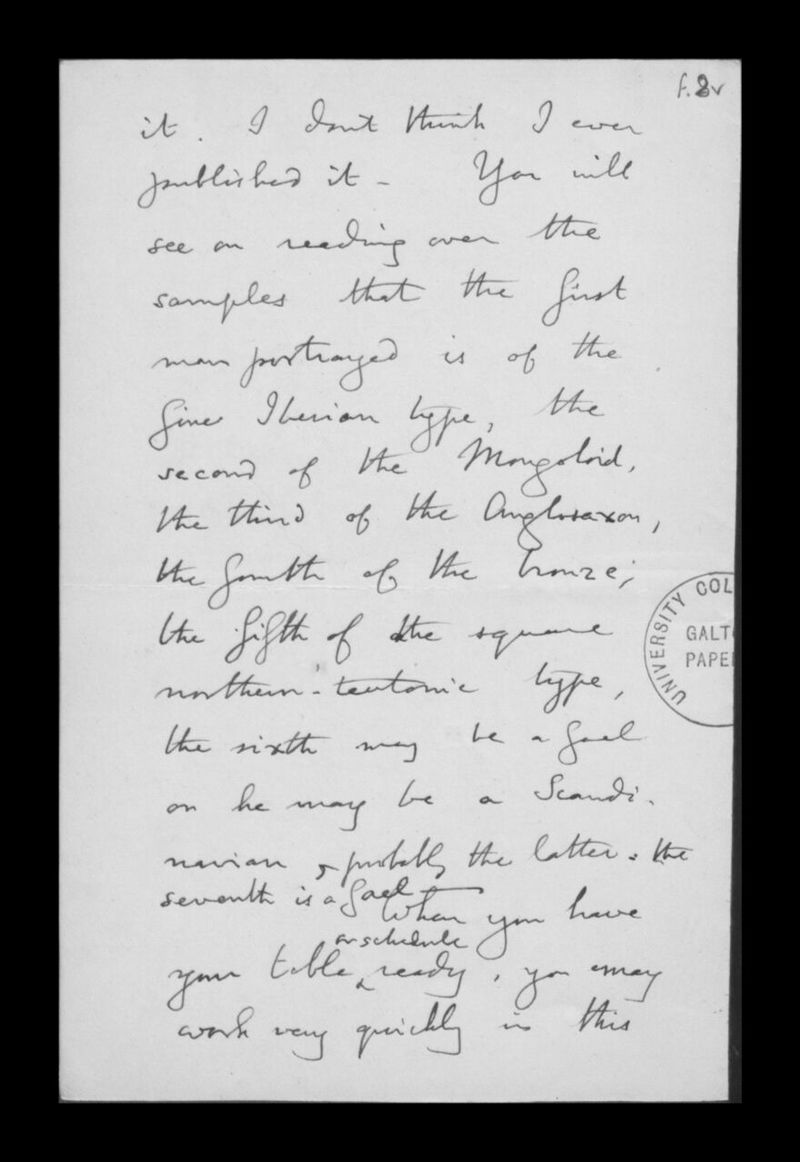 f.2v
it. I don't think I ever
published it - You will
see on reading over the
samples that the first
man portrayed is of the
finer Iberian type, the
second of the Mongoloid,
the third of the Anglosaxon,
the fourth of the bronze;
the fifth of the square
northern-teutonic type,
the sixth may be a Gael
or he may be a Scandi-
navian, & probably the latter. the
seventh is a Gael —
When you have
or schedule
your table ready, you may
work very quickly in this
UNIVERSITY COL
GALT
PAPE